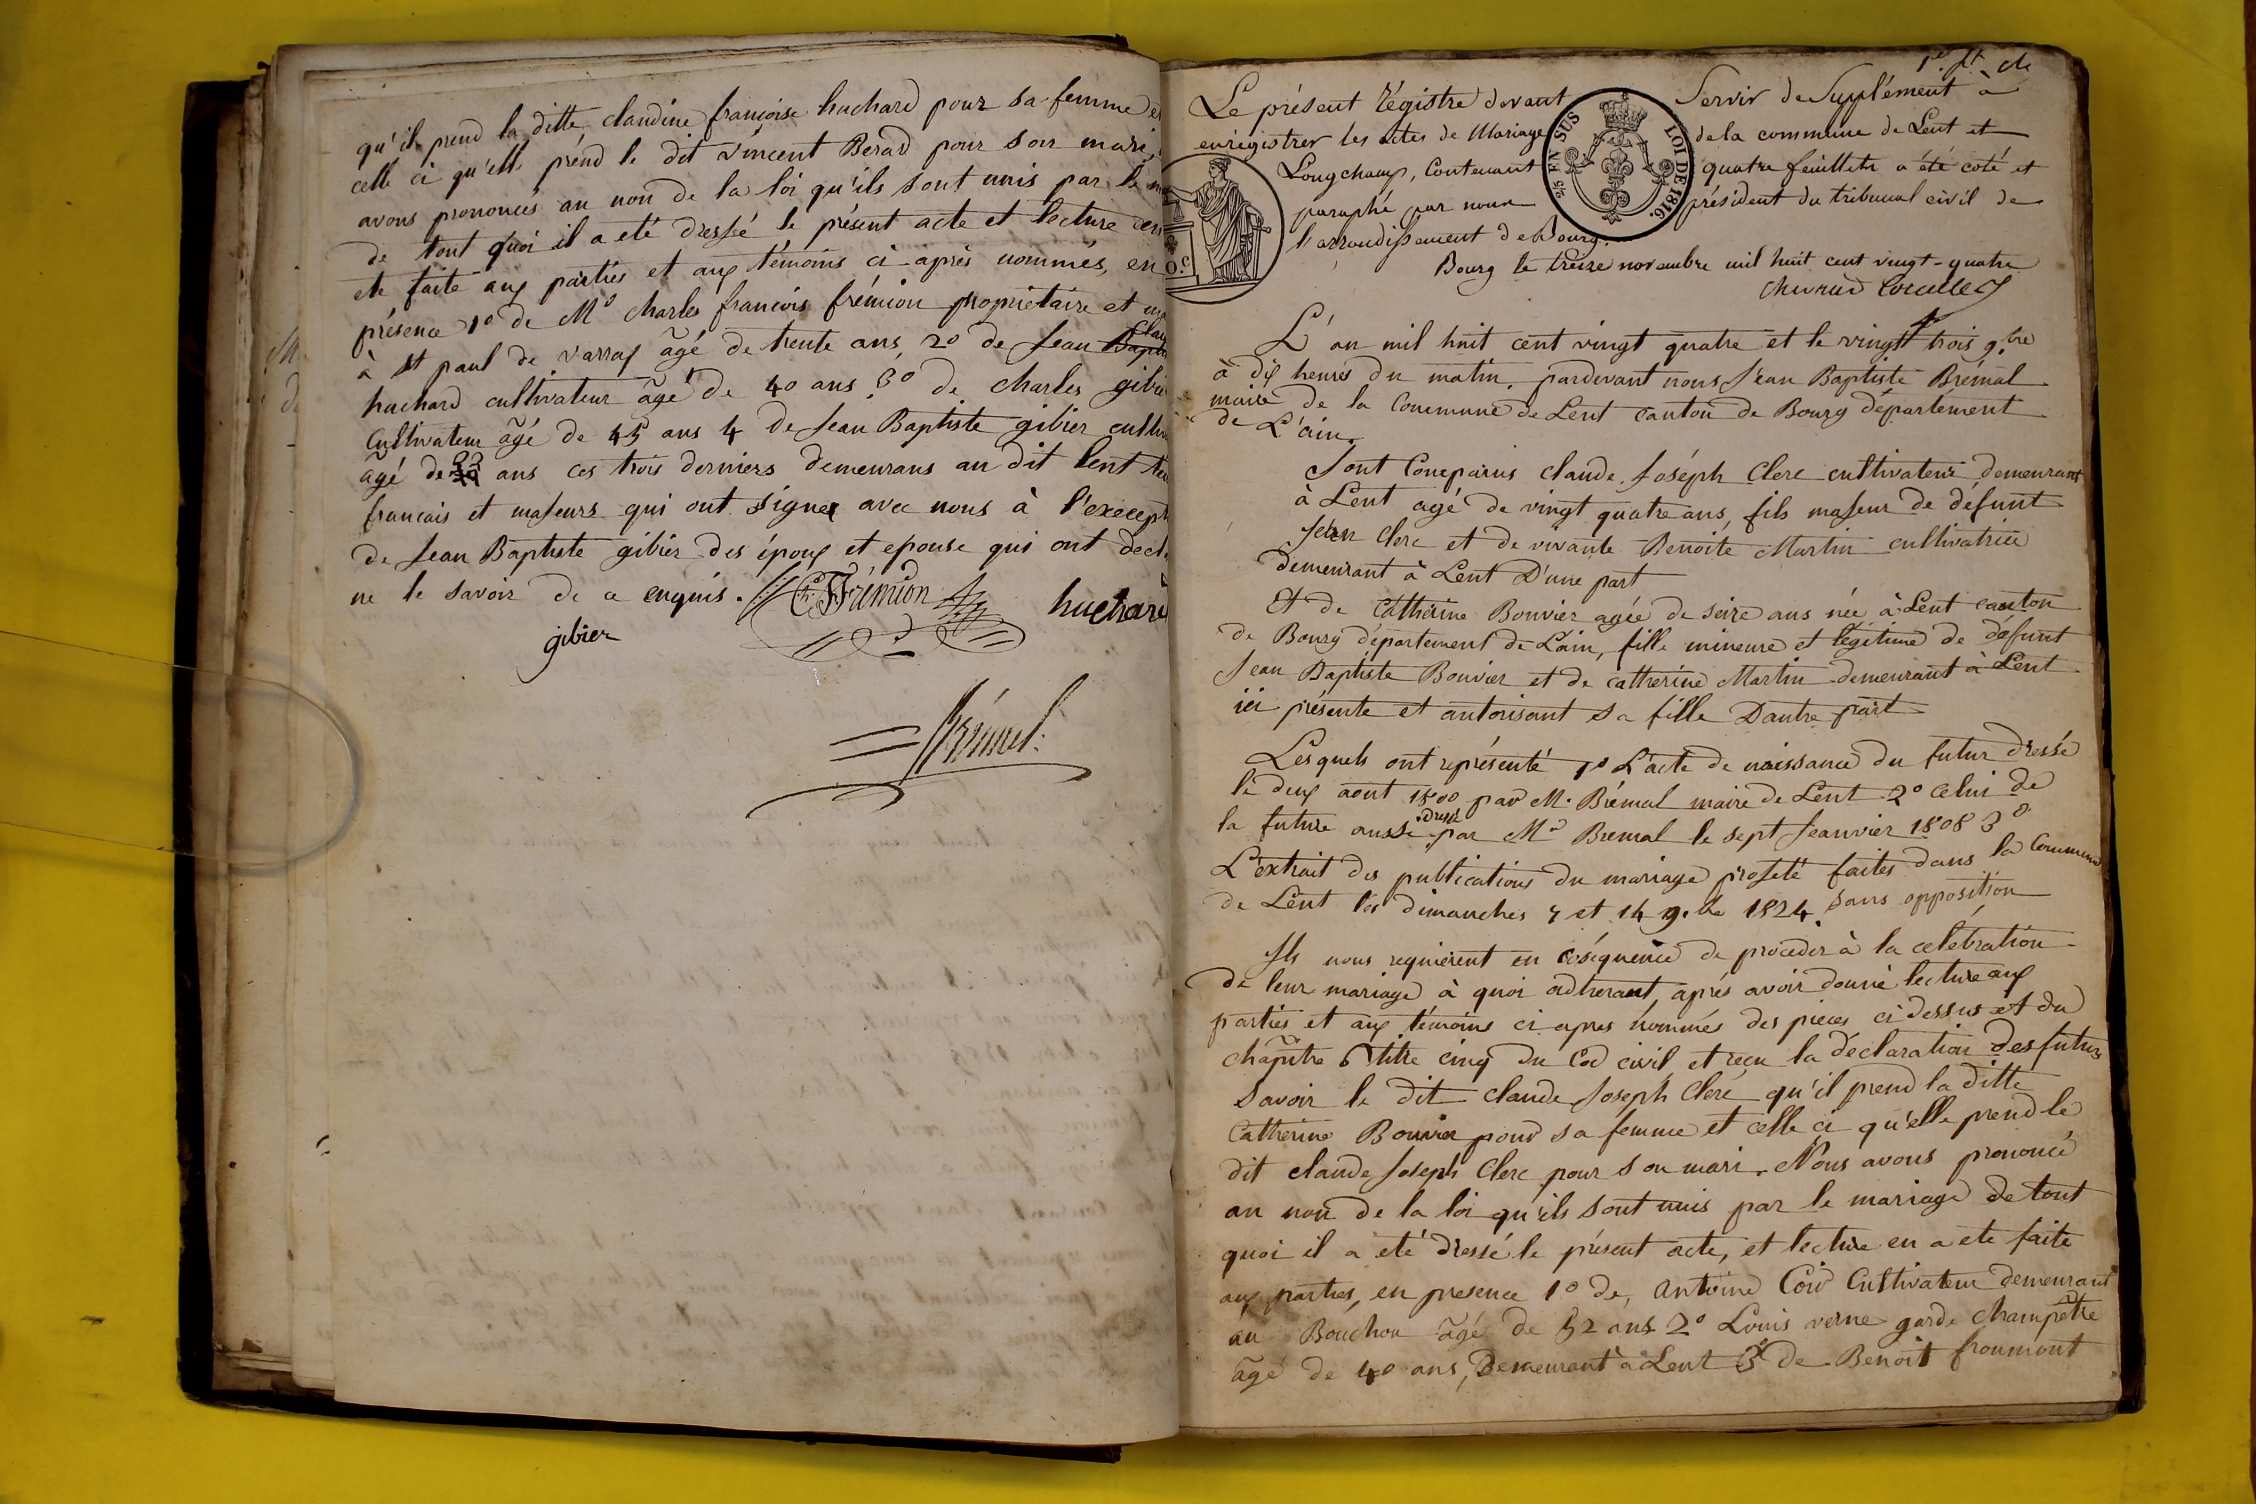 qu'il prend la ditte claudine françoise huchard pour sa femme et
celle ci qu'elle prend le dit vincent Berard pour son mari,
avons prononcés au non de la loi qu'ils sont unis par le
de tout quoi il a eté dressé le présent acte et lecture
eté faite aux parties et aux témoins ci après nommés, en
présence 1º de Mº charles francois frémion propriétaire et
à st paul de varrax agé de trente ans, 2º de Jean
huchard cultivateur âgé de 40 ans 3º de charles gibier
cultivateur âgé de 45 ans 4 de Jean Baptiste gibier
âgé de ans ces trois derniers demeurans au dit lent
francais et majeurs qui ont signes avec nous à l'except
de Jean Baptiste gibier des époux et epouse qui ont decl
ne le savoir de a enquis. Frémion huchard
gibier
Brémal
1er ft
Le présent régistre devant Servir de Supplément à
enrégistrer les actes de Mariage de la commune de Lent et
Longchamp, Contenant quatre feuillets a été coté et
paraphé par nous président du tribunal civil de
l'arrondissement de Bourg.
2/5 EN SUS LOI DE 1816.
Bourg le treize novembre mil huit cent vingt-quatre
L'an mil huit cent vingt quatre et le vingt trois 9.bre
à dix heures du matin, pardevant nous Jean Baptiste Brémal
maire de la Commune de Lent canton de Bourg département
de L'ain.
Sont Comparus claude Joséph Clerc cultivateur demeurant
à Lent agé de vingt quatre ans, fils majeur de défunt
Jean Clerc et de vivante Benoite Martin cultivatrice
demeurant à Lent D'une part
Et de Catherine Bouvier agée de seize ans née à Lent canton
de Bourg département de L'ain, fille mineure et légitime de défunt
Jean Baptiste Bouvier et de catherine Martin demeurant à Lent
ici présente et autorisant sa fille Dautre part
Lesquels ont représenté 1º L'acte de naissance du futur dressé
le deux aout 1800 par M. Brémal maire de Lent 2º celui de
la future aussi dressé par Mº Bremal le sept Jeanvier 1808 3º
L'extrait des publications du mariage projeté faites dans la Commune
de Lent les dimanches 7 et 14 9.bre 1824 sans opposition
Ils nous requierent en coséquence de proceder à la celebration
de leur mariage à quoi adherant, aprés avoir donné lecture aux
parties et aux témoins ci apres nommés des pieces ci dessus et du
chapitre 6 titre cinq du Cod civil, et reçu la déclaration des futurs
savoir le dit claude Joseph Clerc qu'il prend la ditte
Catherine Bouvier pour sa femme et celle ci qu'elle prend le
dit claude Joseph Clerc pour son mari. Nous avons prononcé
au non de la loi qu'ils sont unis par le mariage de tout
quoi il a eté dressé le présent acte, et lecture en a eté faite
aux parties, en presence 1º de, antoine Cultivateur demeurant
au Bouchou âgé de 52 ans 2º Louis verne garde champêtre
âgé de 40 ans, Demeurant à Lent 3º de Benoit froumont